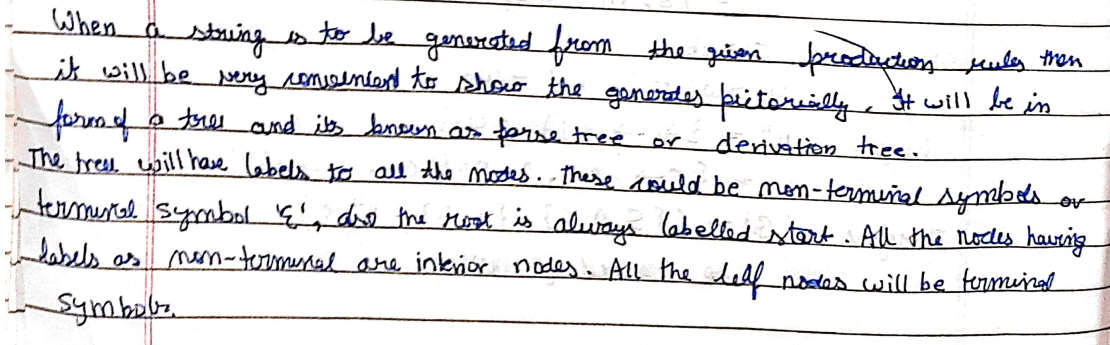 When a string is to be generated from the given production rules then
it will be very convenient to show the generates pictorially. It will be in
form of a tree and its known as parse tree or derivation tree.
The tree will have labels to all the nodes. These could be non-terminal symbols or
terminal symbol 'ε', also the root is always labelled start. All the nodes having
labels as non-terminal are interior nodes. All the leaf nodes will be terminal
symbols.